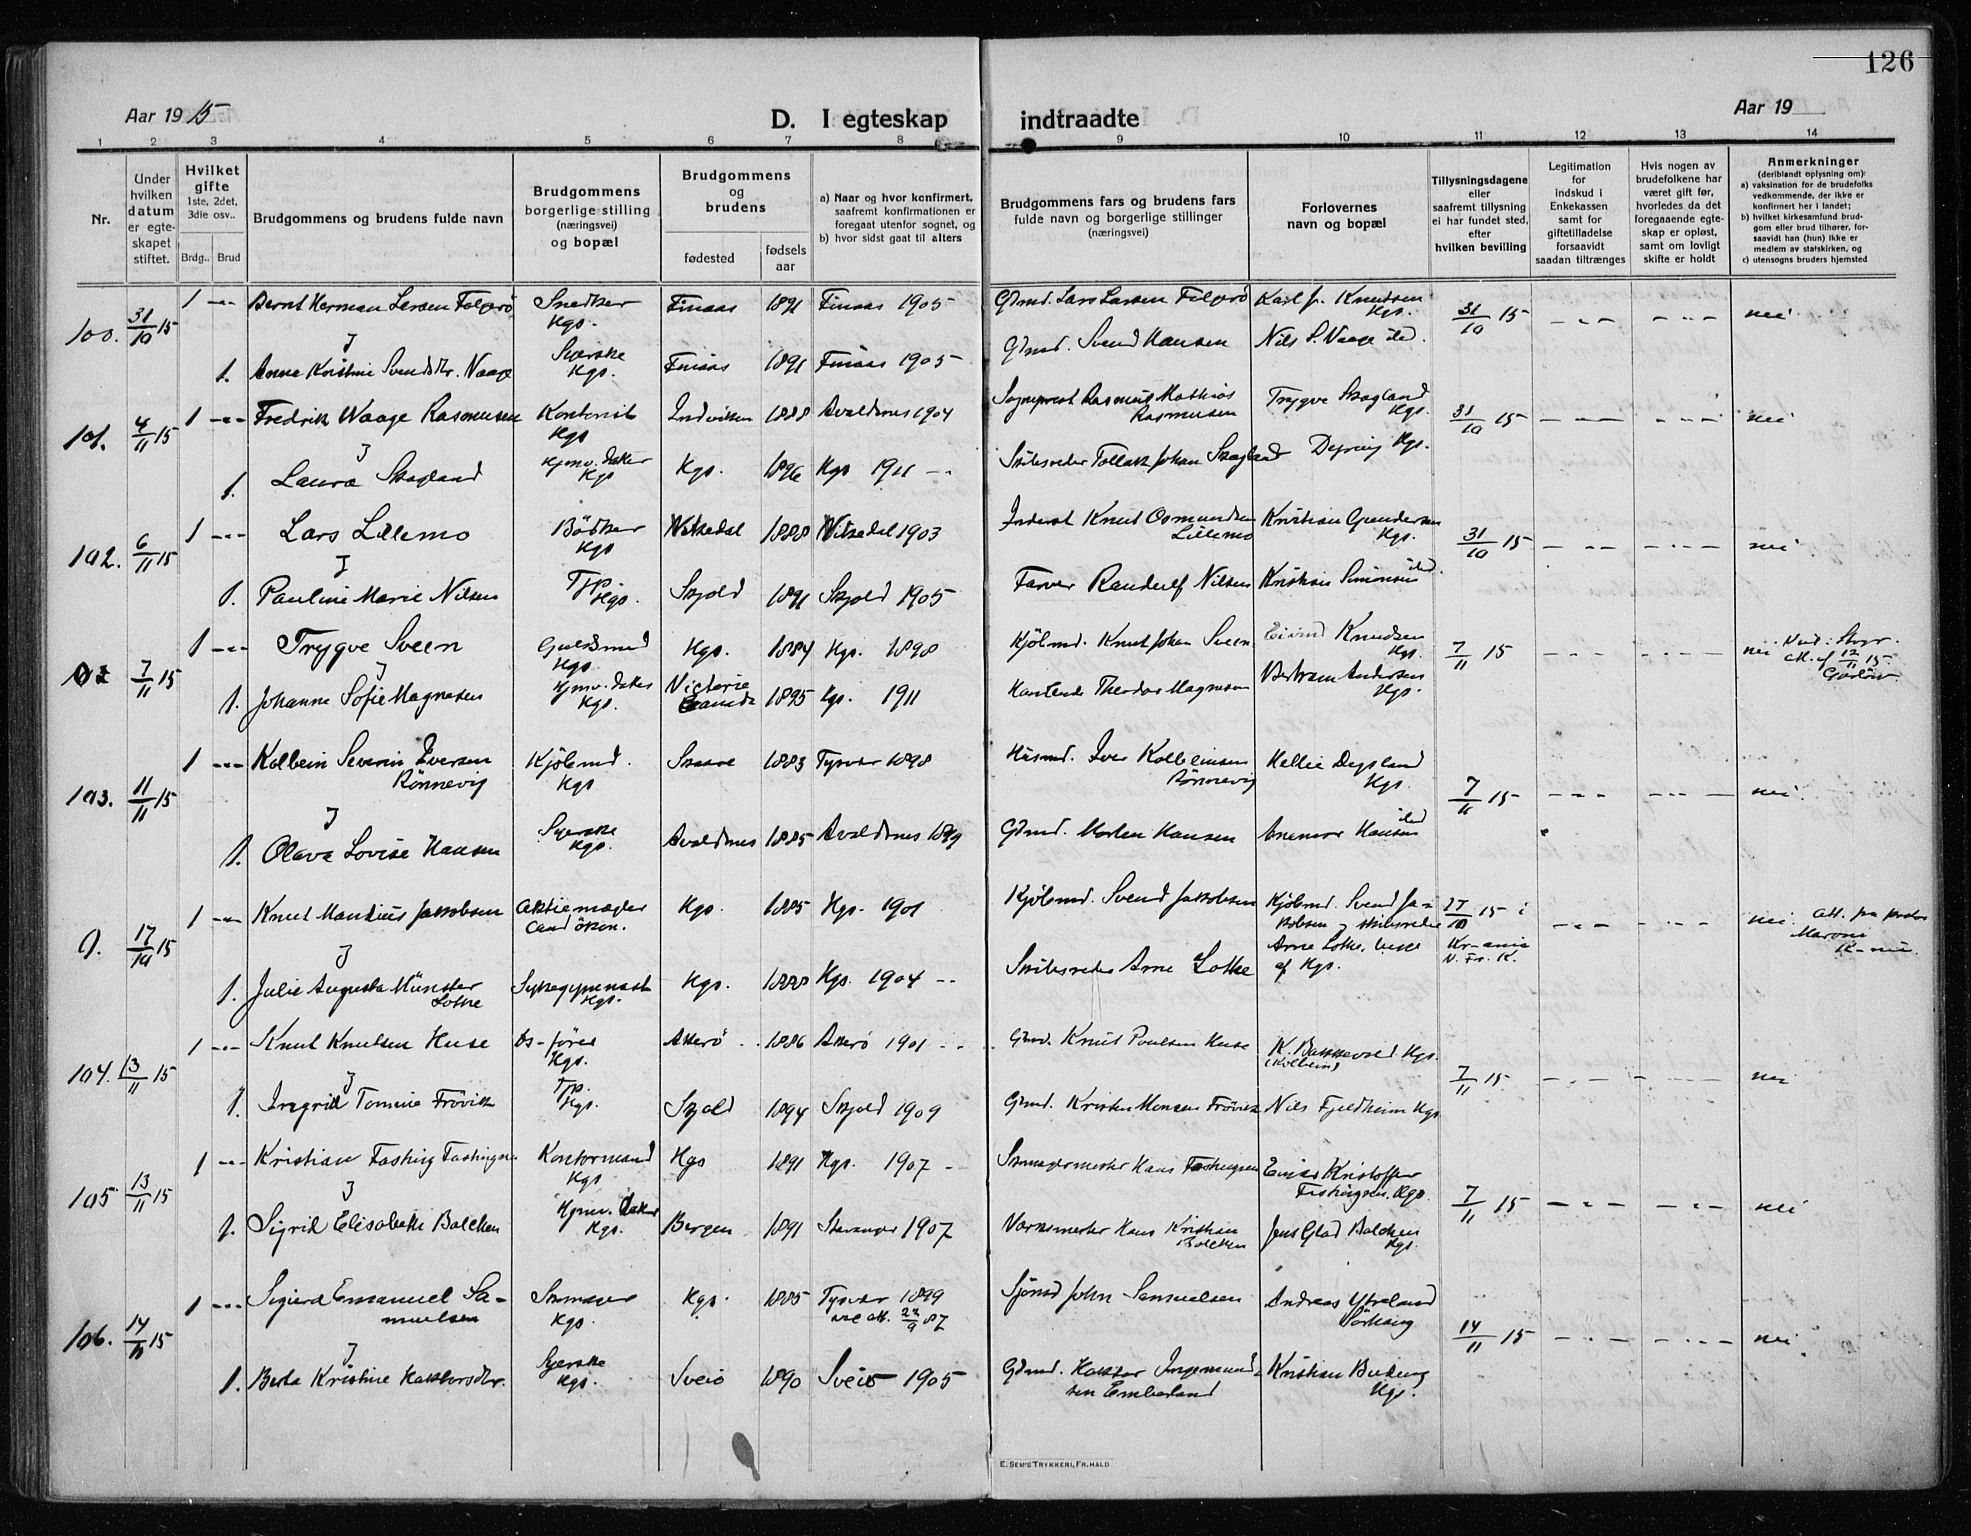 126
Aar 1915
D. I egteskap indtraadte
Aar 19
1 2 3 4 5 6 7 8 9 10 11 12 13 14
Nr.
Under hvilken datum er egteskapet stiftet.
Hvilket gifte 1ste, 2det, 3die osv..
Brdg.. Brud
Brudgommens og brudens fulde navn
Brudgommens borgerlige stilling (næringsvei) og bopæl
Brudgommens og brudens
fødested
fødsels aar
a) Naar og hvor konfirmert, saafremt konfirmationen er foregaat utenfor sognet, og
b) hvor sidst gaat til alters
Brudgommens fars og brudens fars fulde navn og borgerlige stillinger (næringsvei)
Forlovernes navn og bopæl
Tillysningsdagene eller saafremt tillysning ei har fundet sted, efter hvilken bevilling
Legitimation for indskud i Enkekassen samt for giftetilladelse forsaavidt saadan tiltrænges
Hvis nogen av brudefolkene har været gift før, hvorledes da det foregaaende egteskap er opløst, samt om lovligt skifte er holdt
Anmerkninger (deriblandt oplysning om):
a) vaksination for de brudefolks vedkommende, der ikke er konfirmert her i landet;
b) hvilket kirkesamfund brudgom eller brud tilhører, forsaavidt han (hun) ikke er medlem av statskirken, og
c) utensogns bruders hjemsted
100. 31/10 15 1 Bernt Herman Larsen Folgerö Snedker Hgs. Finaas 1891 Finaas 1905 Gbmd. Lars Larsen Folgerö Karl J. Knudsen Hgs. 31/10 15 nei
1. Anna Kristine Svendsdtr. Vaage Syerske Hgs. Finaas 1891 Finaas 1905 Gbmd. Svend Hansen Nils S. Vaage ibd.
101. 4/11 15 1 Fredrik Waage Rasmussen Kontorist Hgs Indviken 1888 Avaldsnes 1904 Sogneprest Rasmus Mathias Rasmussen Trygve Skogland Hgs. 31/10 15 nei
1. Laura Skogland Hjmv. datter Hgs Hgs. 1896 Hgs 1911 Skibsreder Tollak Johan Skogland Hgs.
102. 6/11 15 1 Lars Lillemo Bödker Hgs Vikedal 1888 Vikedal 1903 Inderst Knut Osmundsen Lillemo Kristian Gundersen Hgs. 31/10 15 nei
1. Pauline Marie Nilsen Tjp. Hgs. Skjold 1891 Skjold 1905 Farver Randulf Nilsen Kristian Simonsen ibd.
7/11 15 1 Trygve Sveen Guldsmed Hgs. Hgs. 1884 Hgs. 1898 Kjöbmd. Knut Johan Sveen Eivind Knudsen Hgs. 7/11 15 nei
12/11 15
1. Johanne Sofie Magnesen Hjmv. datter Hgs. Victoria Canada 1895 Hgs. 1911 Theodor Magnesen Bertram Andersen Hgs.
103. 11/11 15 1 Kolbein Severin Iversen Rönnevig Kjöbmd. Hgs Skaare 1883 Tysvær 1898 Husmd. Iver Kolbeinsen Rönnevig Hellie Degsland Hgs. 7/11 15 nei.
1. Olava Lovise Hansen Syerske Hgs. Avaldsnes 1885 Avaldsnes 1899 Gbmd. Morten Hansen Hansen ibd
9. 17/10 15 1 Knut Mansius Jakobsen Aktiemægler cand ökon. Hgs. 1885 Hgs. 1901 Kjöbmd. Svend Jakobsen Kjöbmd. Svend Jakobsen og skibsreder Arne Lothe, begge af Hgs. 17/10 15 i Kr-ania V. Fr. K. nei. Att. fra pastor K-nia.
1. Julie Augusta Münster Lothe Sykegymnast Hgs. Hgs. 1888 Hgs. 1904 Skibsreder Arne Lothe
104. 13/11 15 1 Knut Knutsen Huse Ds-förer Hgs. Akerö 1886 Akerö 1901 Gbmd. Knut Poulsen Huse K. Bakkevold Hgs. (Kolbein) 7/11 15 nei
1. Ingrid Tomine Frövik Tjp. Hgs. Skjold 1894 Skjold 1909 Gbmd. Kristen Monsen Frövik Nils Fjeldheim Hgs
105 13/11 15 1 Kristian Fasting Fastingsen Kontormand Hgs Hgs 1891 Hgs. 1907 Skomagermester Hans Fastingsen Kristoffer Fastingsen, Hgs. 7/11 15 nei
1. Sigrid Elisabeth Balchen Hjmv. datter Hgs. Bergen 1891 Stavanger 1907 Hans Kristian Balchen Jens Glad Balchen Hgs.
106. 14/11 15 1 Sigurd Emanuel Samuelsen Skomager Hgs. Hgs. 1885 Tysvær 1899 vac att. 22/9 87 Sjömd John Samuelsen Andreas Ytreland Sörhaug 14/11 15 nei.
1. Berta Kristine Haktorsdtr. Syerske Hgs. Sveio 1890 Sveio 1905 Gbmd. Haktor Ingemundsen Emberland Kristian Hgs.
E. SEM'S TRYKKERI, FR.HALD